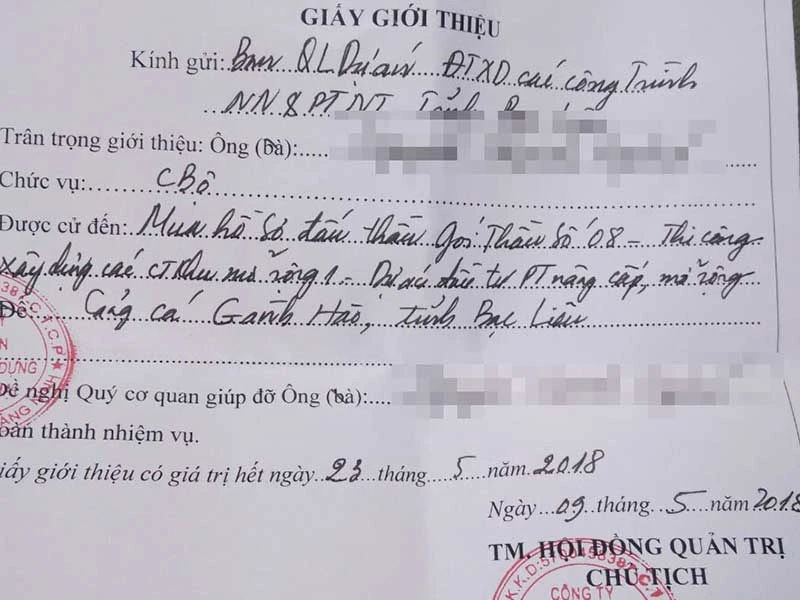 GIẤY GIỚI THIỆU
Kính gửi: Ban QL Dự án ĐTXD các công trình
NN & PTNT Tỉnh
Trân trọng giới thiệu: Ông (bà):
Chức vụ: CBộ
Được cử đến: Mua hồ sơ đấu thầu gói thầu số 08 - Thi công
xây dựng các CT khu mở rộng 1 - Dự án đầu tư PT nâng cấp, mở rộng
Để: Cảng cá Gành Hào, tỉnh Bạc Liêu
Đề nghị Quý cơ quan giúp đỡ Ông (bà):
oàn thành nhiệm vụ.
iấy giới thiệu có giá trị hết ngày 23 tháng 5 năm 2018
Ngày 09 tháng 5 năm 2018
TM. HỘI ĐỒNG QUẢN TRỊ
CHỦ TỊCH
CÔNG TY